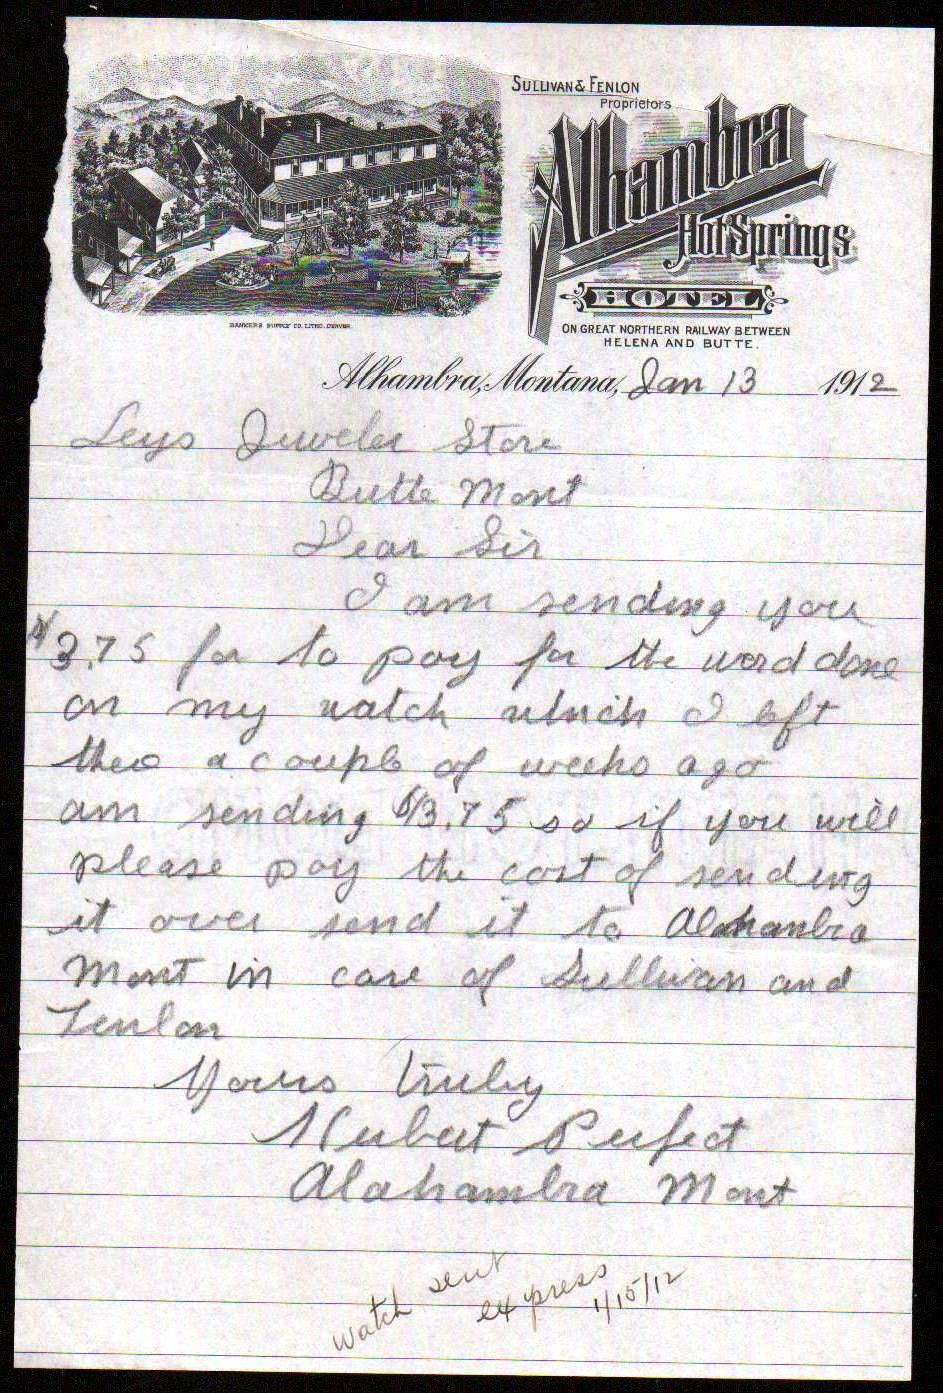 SULLIVAN & FENLON
Proprietors
Alhambra
Hot Springs
HOTEL
ON GREAT NORTHERN RAILWAY BETWEEN
HELENA AND BUTTE.
BANKERS SUPPLY CO. LITHO. DENVER.
Alhambra, Montana, Jan 13 1912
Leys Juweler Store
Butte Mont
Dear Sir
I am sending you
$3.75 for to pay for the word done
on my watch which I left
there a couple of weeks ago
am sending $3.75 so if you will
please pay the cost of sending
it over send it to Alahambra
Mont in care of Sullivan and
Fenlon
Yours truly
Hubert Perfect
Alahambra Mont
watch sent
express
1/15/12